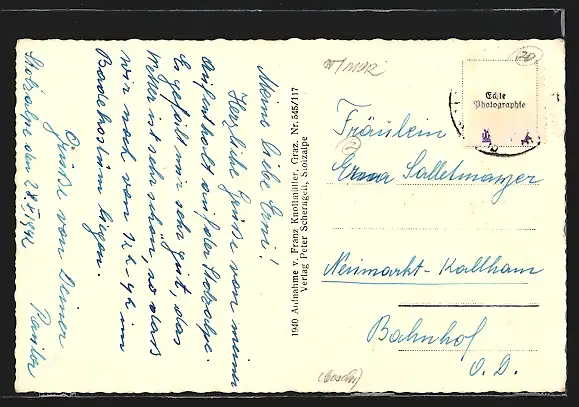 Meine liebe Erni!
Herzliche Grüße von meinem
Aufenthalt auf der Stolzalpe.
Es gefällt mir sehr gut, das
Wetter ist sehr schön, so daß
wir noch von 12h-4h im
Badekostüm liegen.
Grüße von Deiner
Stolzalpe den
1940 Aufnahme v. Franz Knollmüller, Graz, Nr. 545/117
Verlag Peter Scherngell, Stolzalpe
Echte
Photographie
Fräulein
Erna Salletmayer
Neumarkt-Kallham
Bahnhof
O. D.